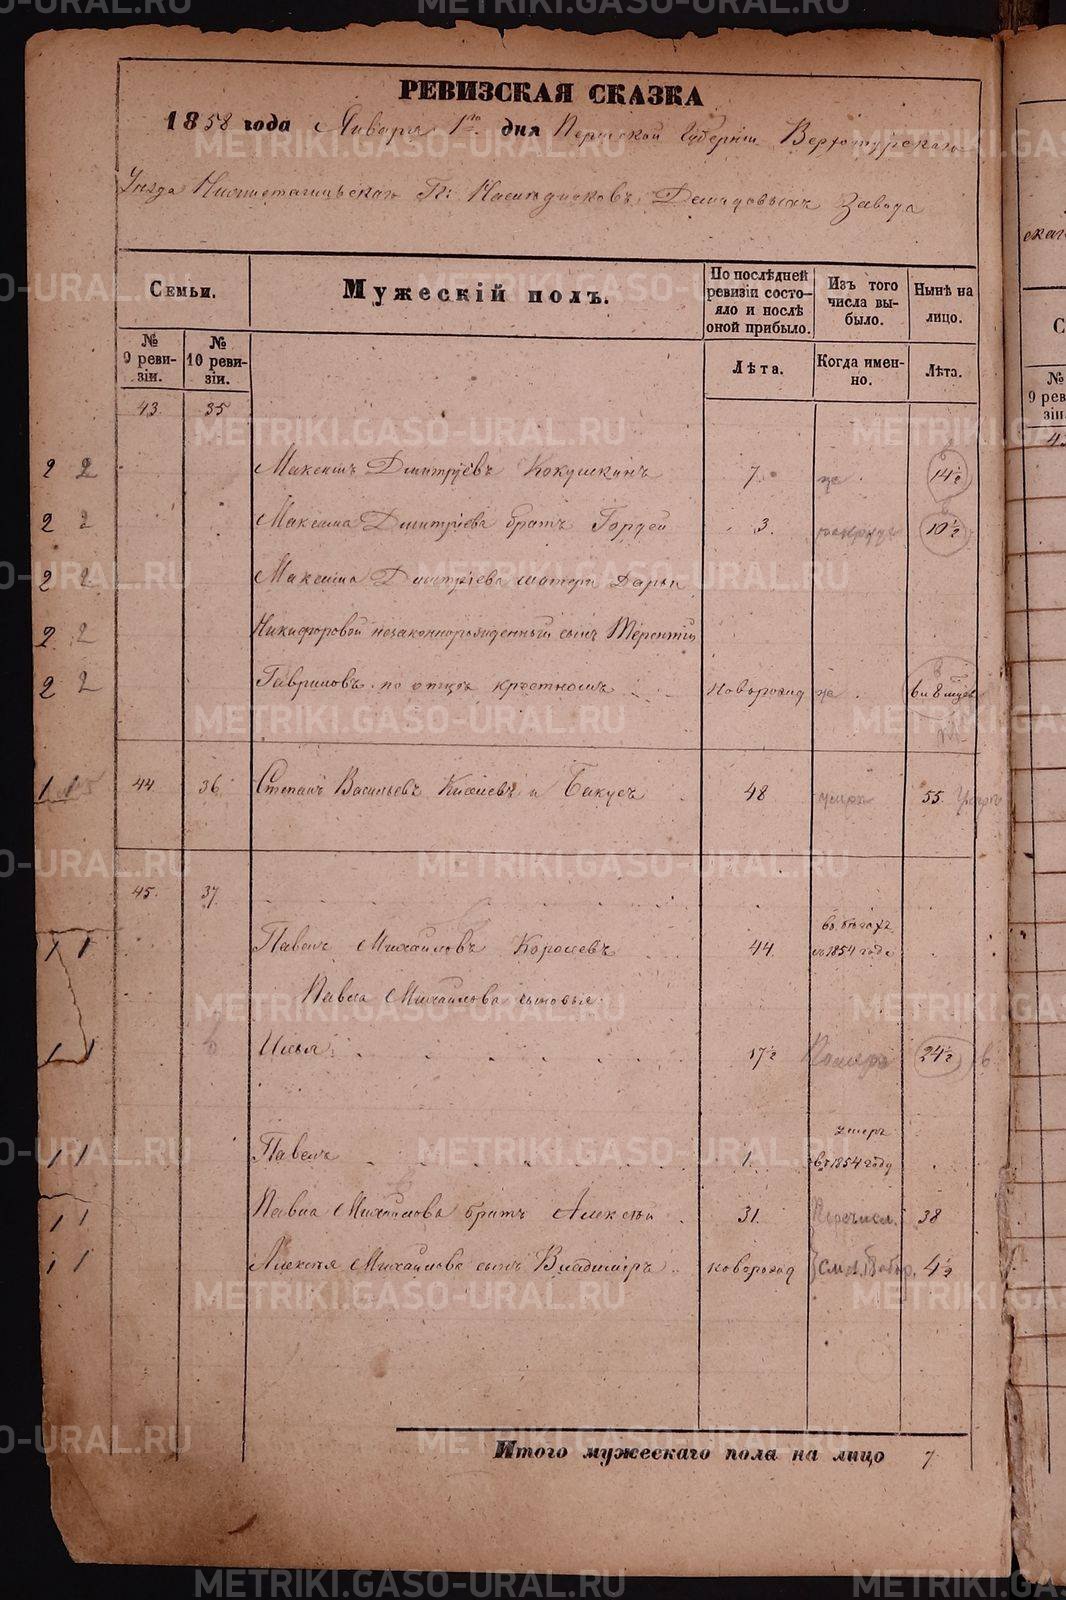 РЕВИЗСКАЯ СКАЗКА
1858 года Января 1го дня Пермской Губерніи Верхотурскаго
Уезда Нижнетагильскаго Гг: Наследниковъ Демидовыхъ Завода
Семьи.
Мужескій полъ.
По последней ревизіи состояло и после оной прибыло.
Изъ того числа выбыло.
Ныне на лицо.
№ 9 ревизіи.
№ 10 ревизіи.
Лета.
Когда именно.
Лета.
43. 35
2 2 Максимъ Дмитріевъ Кокушкинъ 7. 14½
2 2 Максима Дмитріева братъ Гордей 3. рекрутъ 10½
2 2 Максима Дмитріева матери Дарьи
2 2 Никифоровой незаконнорожденный сынъ Терентій
2 2 Гавриловъ по отцу крестномъ новорожд 6 и 8 мцев
1 44 36 Степанъ Васильевъ Киселевъ и Бакусъ 48 умеръ 55.
45. 37.
1 1 Павелъ Михайловъ Королевъ 44. въ бегахъ съ 1854 года
Павла Михайлова сыновья:
1 1 Илья 17½ Померъ 24½
1 1 Павелъ 1. умеръ въ 1854 году
1 1 Павла Михайлова братъ Алексей 31. Перечисл. 38
1 1 Алексея Михайлова сынъ Владиміръ новорожд 4½
Итого мужескаго пола на лицо 7
METRIKI.GASO-URAL.RU